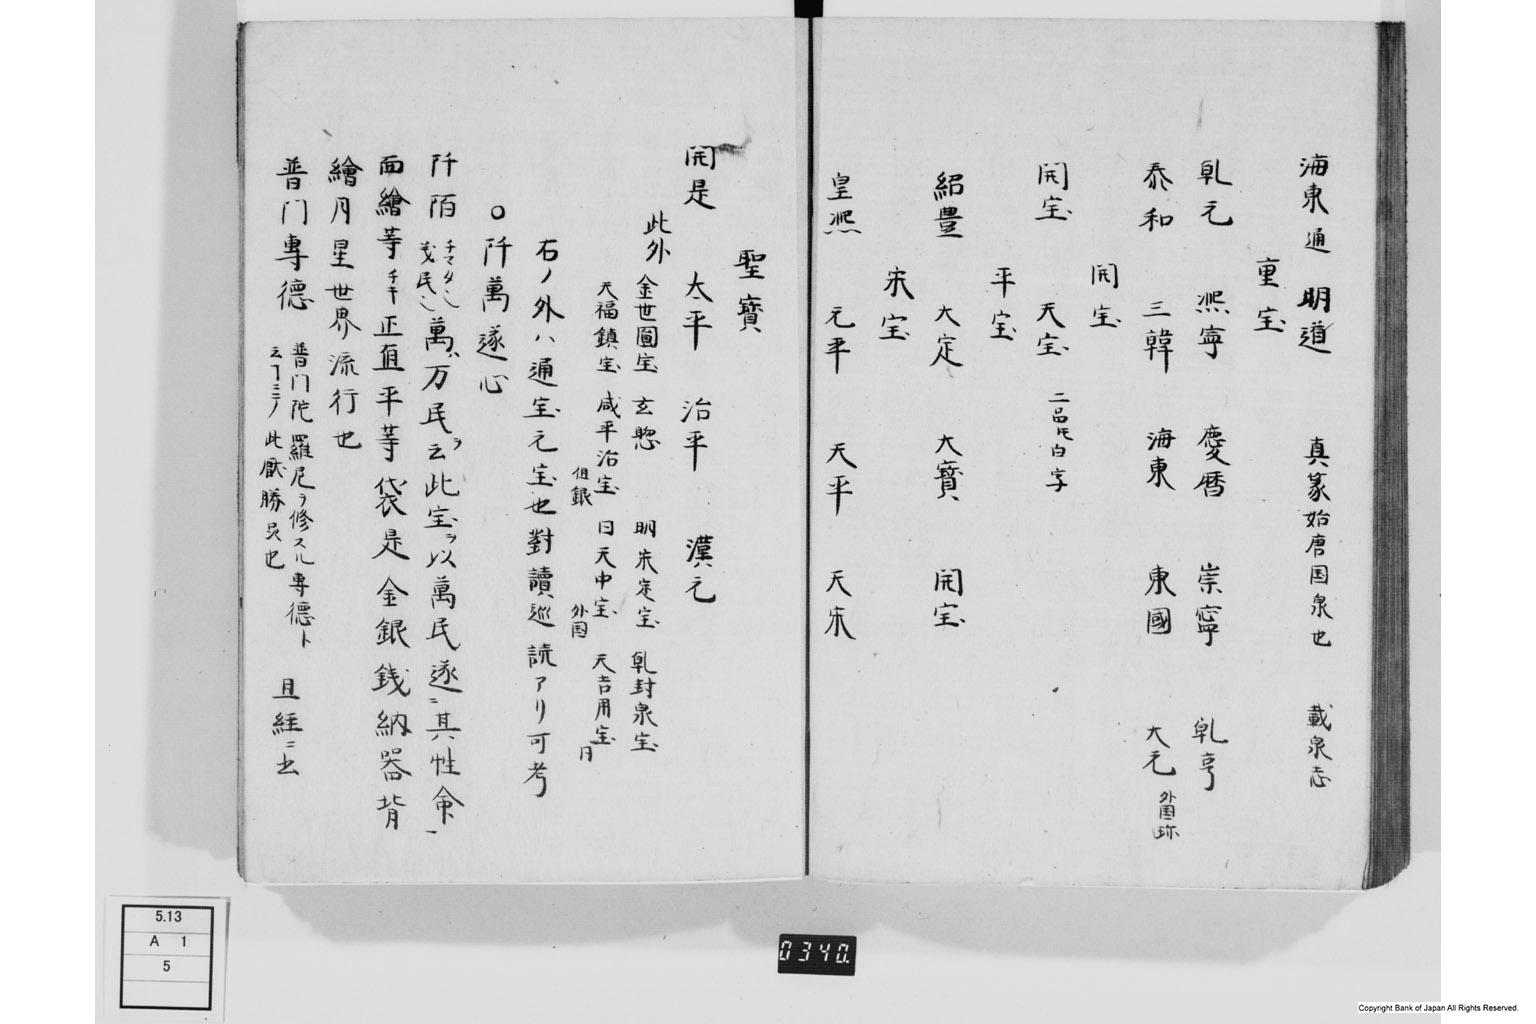 海東通 明道 真篆始唐国泉也 載泉志
重宝
乹元 熈寧 慶暦 崇寧 乹亨
泰和 三韓 海東 東國 大元 外国珎
開宝
開宝 天宝 二品トモ白字
平宝
紹豊 大定 大寳 開宝
宋宝
皇熈 元平 天平 天宋
聖寳
開是 太平 治平 漢元
此外 金世圓宝 玄惣 明宋定宝 乹封泉宝
天福鎮宝 咸平治宝 但銀 日天中宝 外国 天吉用宝 同
右ノ外ハ通宝元宝也對讀巡読アリ可考
○阡萬遂心
阡陌 萬ハ万民ヲ云此宝ヲ以萬民遂ニ其性命一
面繪等 正直平等袋是金銀銭納器背
繪月星世界流行也
普门專德 普门陀羅尼ヲ修スル專德ト
云 此厭勝呉也 且経ニ出
5.13
A 1
5
0340
Copyright Bank of Japan All Rights Reserved.